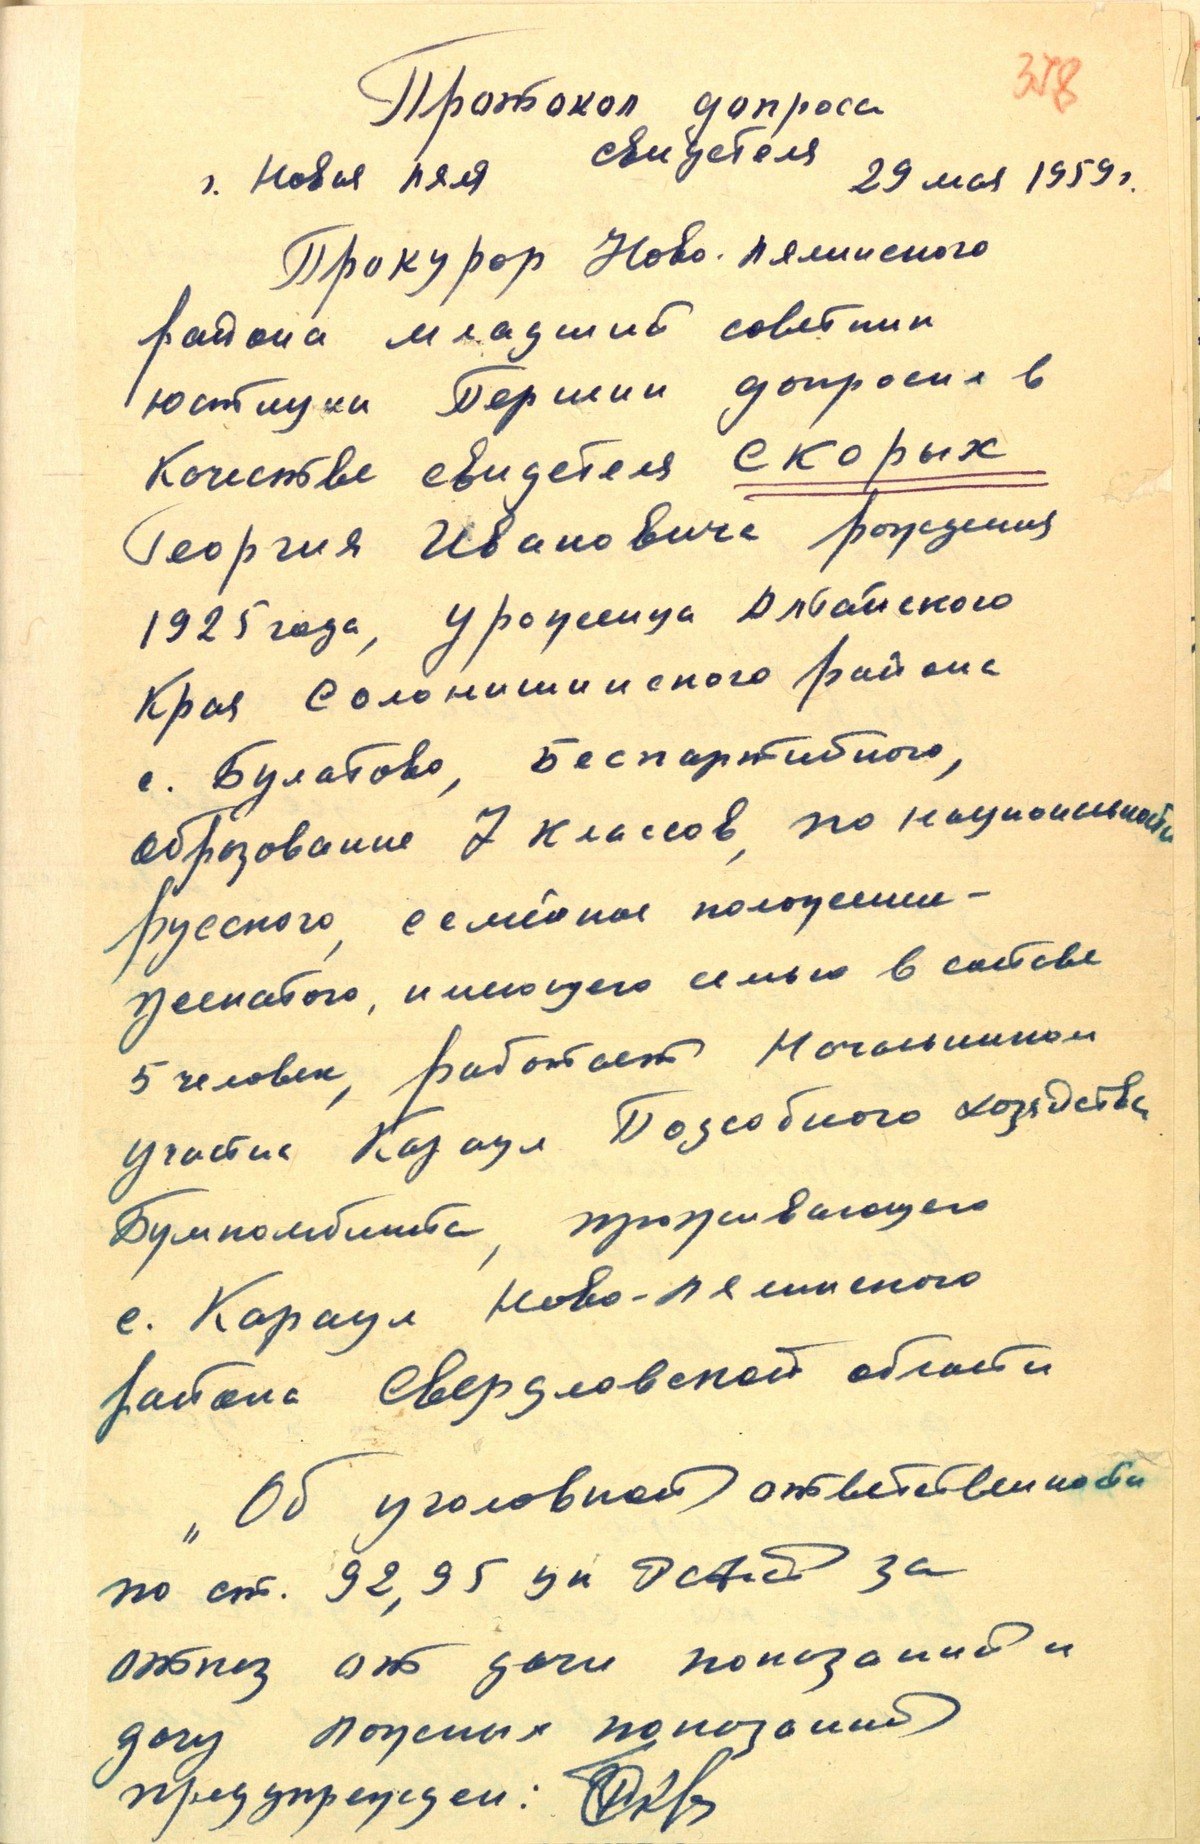 378
Протокол допроса
свидетеля
г. Новая Ляля 29 мая 1959 г.
Прокурор Ново-Лялинского
района младший советник
юстиции Першин допросил в
качестве свидетеля Скорых
Георгия Ивановича рождения
1925 года, уроженца Алтайского
края Солонишинского района
с. Булатово, беспартийного,
образование 7 классов, по национальности
русского, семейное положение –
женатого, имеющего семью в составе
5 человек, работает начальником
участка Караул Подсобного хозяйства
Бумкомбината, проживающего
с. Караул Ново-Лялинского
района Свердловской области
„Об уголовной ответственности
по ст. 92, 95 УК РСФСР за
отказ от дачи показаний и
дачу ложных показаний
предупрежден: